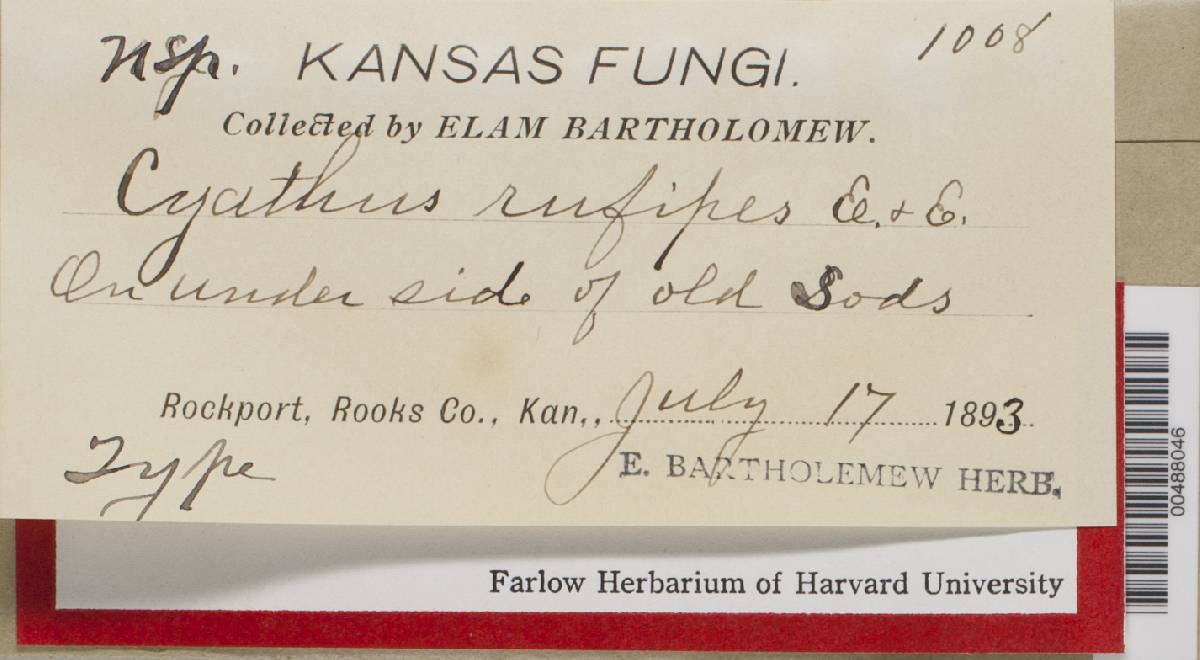 nsp. KANSAS FUNGI. 1008
Collected by ELAM BARTHOLOMEW.
Cyathus rufipes E. & E.
On under side of old Sods
Rockport, Rooks Co., Kan., July 17 1893
Type
E. BARTHOLEMEW HERB.
Farlow Herbarium of Harvard University
00488046